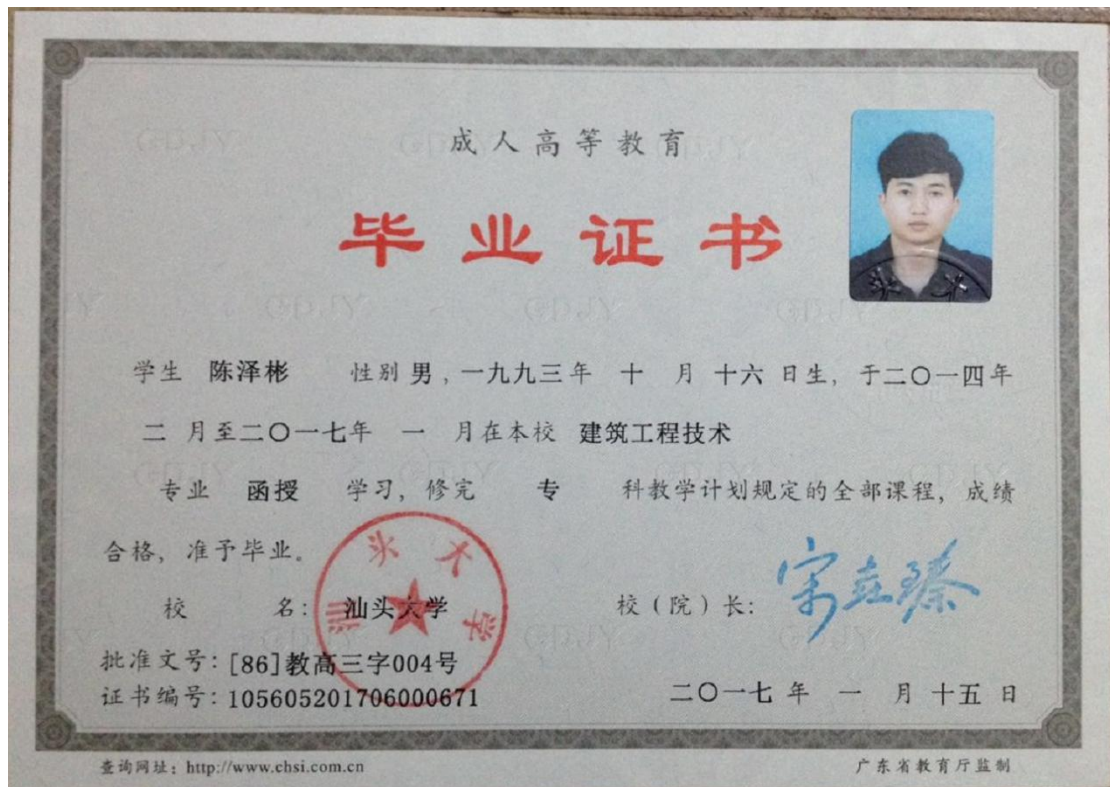 成人高等教育
毕业证书
学生 陈泽彬 性别 男 , 一九九三年 十 月 十六 日生, 于二〇一四年
二 月至二〇一七年 一 月在本校 建筑工程技术
专业 函授 学习, 修完 专 科教学计划规定的全部课程, 成绩
合格, 准予毕业。
校 名: 汕头大学
校(院)长:
批准文号: [86]教高三字004号
证书编号: 105605201706000671
二〇一七 年 一 月 十五 日
汕头大学
查询网址: http://www.chsi.com.cn
广东省教育厅监制
GDJY